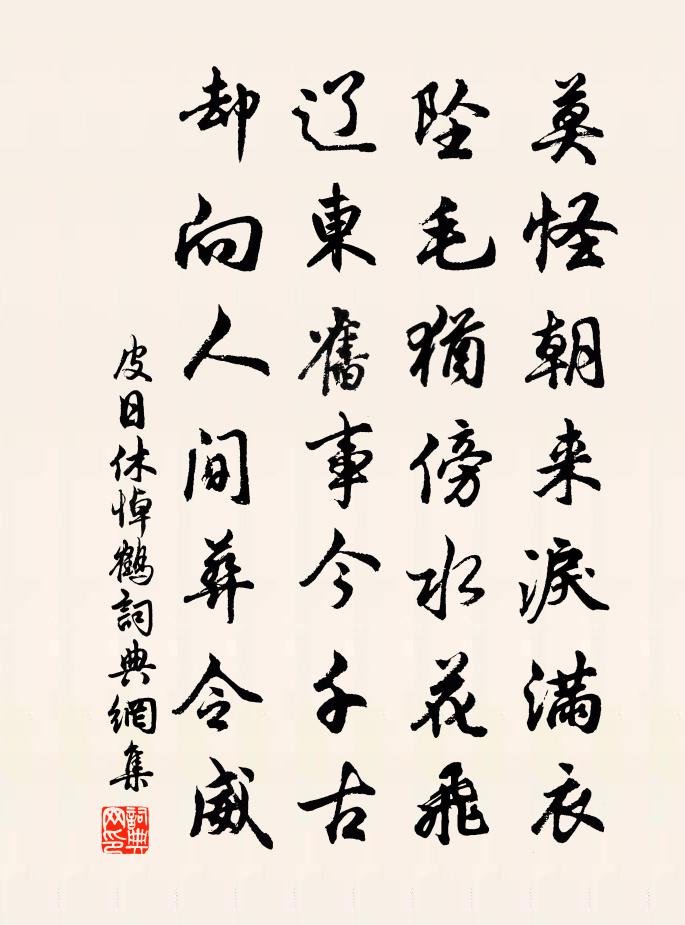 莫怪朝来淚满衣
坠毛猶傍水花飛
辽東舊事今千古
却向人间葬令威
皮日休悼鶴詞典網集
詞典网印